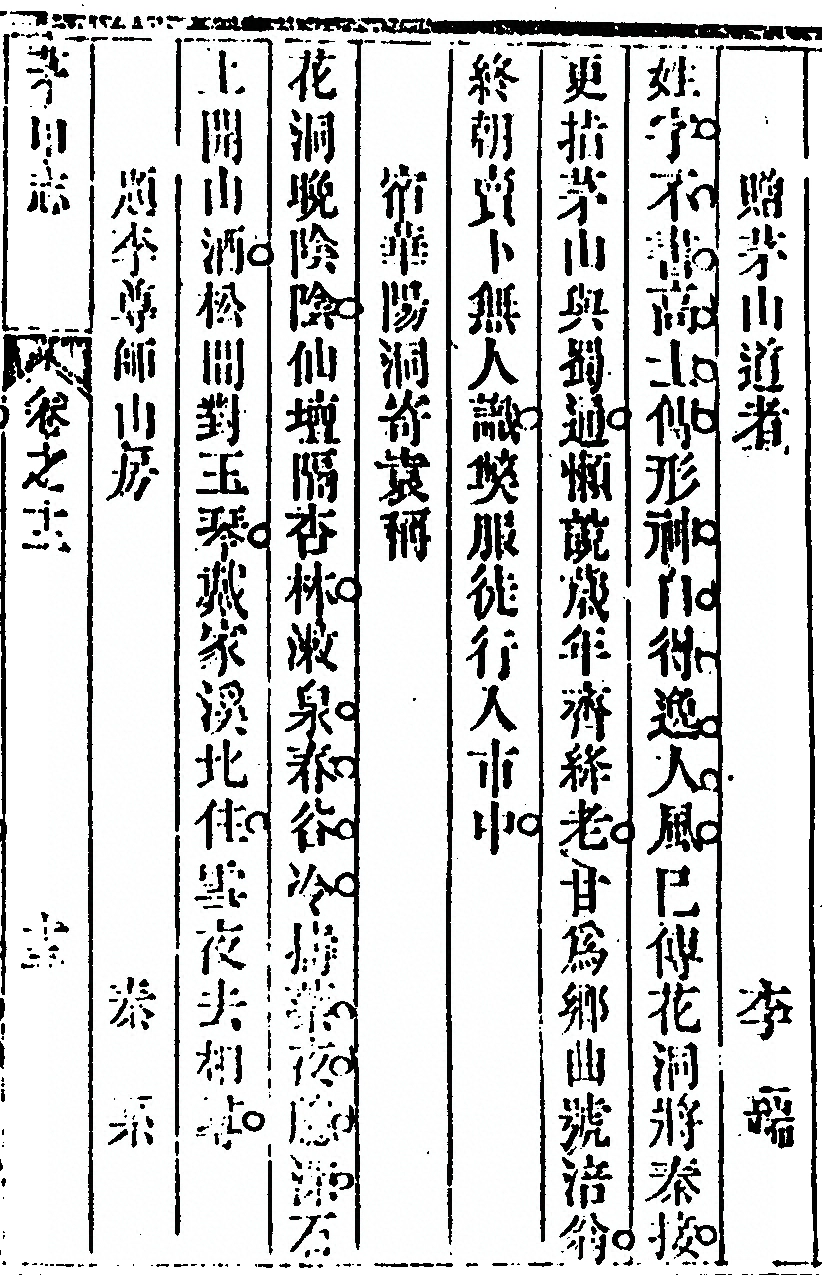 贈茅山道者　李端
姓字不書高士傳形神自得逸人風已傳花洞將秦接
更指茅山與蜀通懶說歲年齊絳老甘爲鄉曲號涪翁
終朝賣卜無人識獘服徒行入市中
宿華陽洞寄袁稱
花洞晚陰陰仙壇隔杏林漱泉春谷冷擣藥夜窻深石
上開山酒松間對玉琴戴家溪北住雪夜去相尋
題李尊師山房　秦系
茅山志　卷之